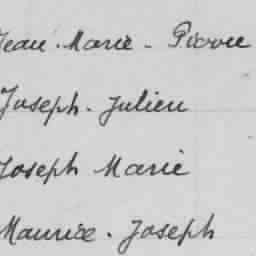 Jean-Marie-Pierre
Joseph-Julien
Joseph Marie
Maurice-Joseph